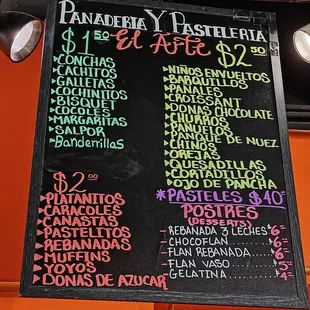 PANADERIA Y PASTELERIA
El Arte
$1.50
CONCHAS
CACHITOS
GALLETAS
COCHINITOS
BISQUET
COCOLES
MARGARITAS
SALPOR
Banderrillas
$2.00
PLATANITOS
CARACOLES
CANASTAS
PASTELITOS
REBANADAS
MUFFINS
YOYOS
DONAS DE AZUCAR
$2.50
NIÑOS ENVUELTOS
BARQUILLOS
PANALES
CROISSANT
DONAS CHOCOLATE
CHURROS
PAÑUELOS
PANQUE DE NUEZ
CHINOS
OREJAS
QUESADILLAS
CORTADILLOS
OJO DE PANCHA
*PASTELES $40
POSTRES
(DESSERTS)
REBANADA 3 LECHES 6
CHOCOFLAN 6
FLAN REBANADA 6
FLAN VASO 5
GELATINA 4